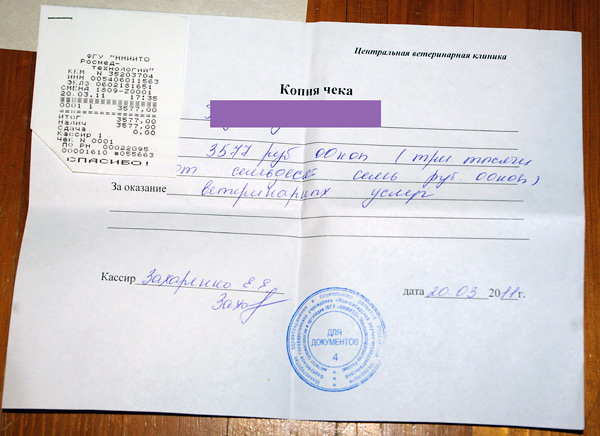 ФГУ "ННИИТО
Росмед-
технологий"
ККМ N 35203704
ИНН 005406011563
ЭКЛЗ 0602181651
СМЕНА 1809-20001
20.03.11 17:35
0001 1 3577,00
ИТОГ 3577,00
НАЛИЧ 3577,00
СДАЧА 0,00
КАССИР 1
ЧЕК N 0001
ПО РМ 00022095
00001610 #055663
СПАСИБО!
Центральная ветеринарная клиника
Копия чека
3577 руб 00коп (три тысячи
от семьдесят семь руб 00коп)
За оказание ветеринарных услуг
Кассир Захаренко Е.Я.
Захар
дата 20.03 2011г.
ДЛЯ
ДОКУМЕНТОВ
4